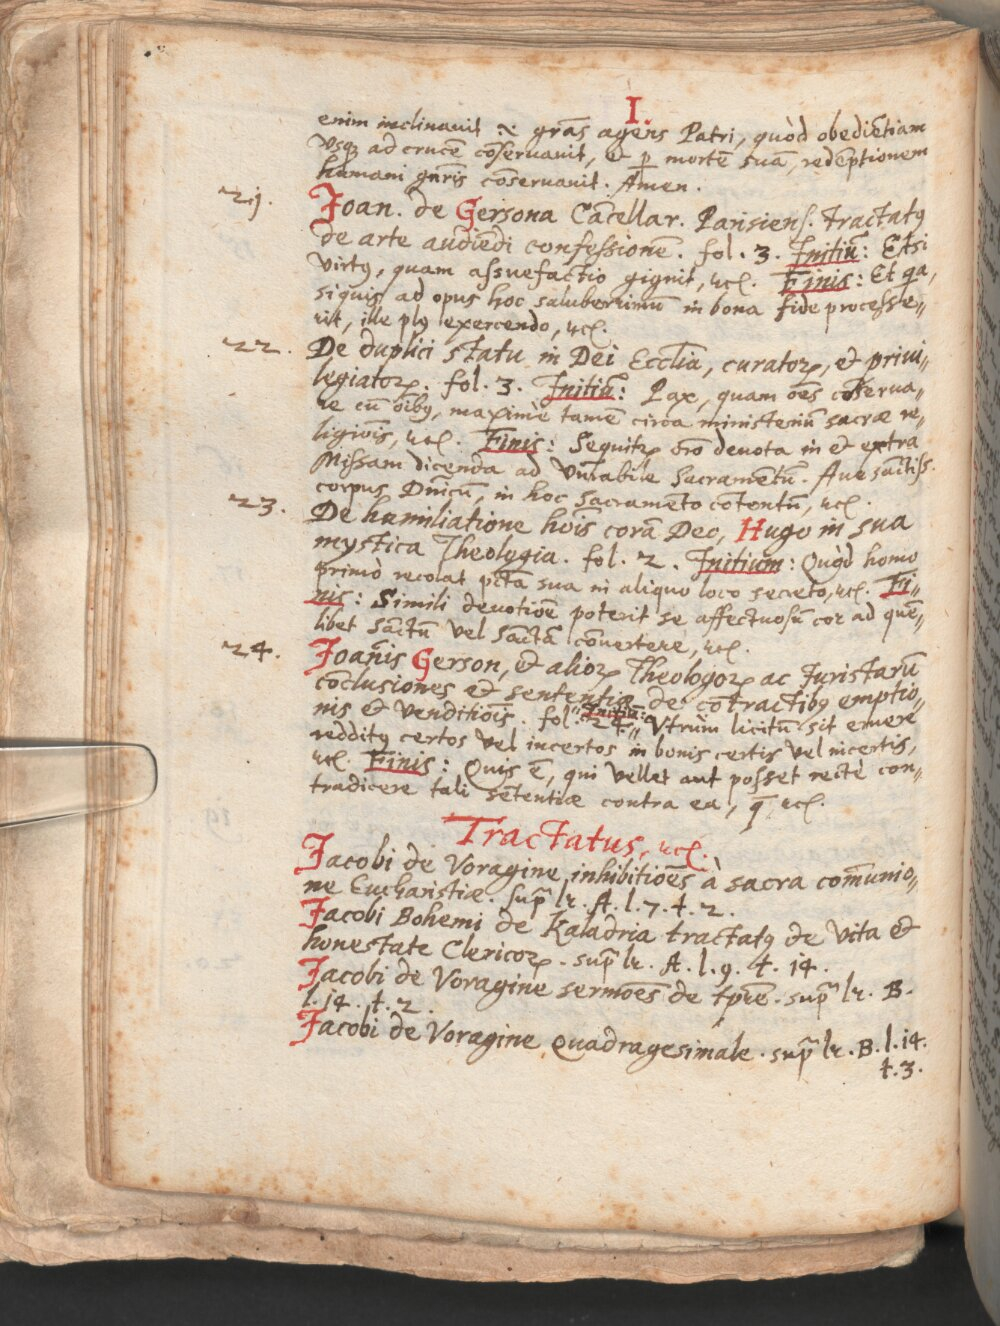 I.
enim inclinauit etc. grãs agens Patri, quòd obediẽtiam
vsq; ad crucẽ cõseruauit, et p mortẽ suã, redẽptionem
humani gñris cõseruauit. Amen.
21. Joan. de Gersona Cãcellar. Parisiens. tractatꝰ
de arte audiẽdi confessionẽ. fol. 3. Initiũ: Etsi
virtꝰ, quam assuefactio gignit, etc. Finis: Et qa,
siquis ad opus hoc saluberrimũ in bona fide processe„
rit, ille plꝰ exercendo, etc.
22. De duplici statu in Dei Ecclia, curatoꝝ, et priui„
legiatoꝝ. fol. 3. Initiũ: Pax, quam oẽs cõserua„
re cũ oĩbꝰ, maximè tamẽ circa ministeriũ sacræ re„
ligiõis, etc. Finis: Sequitꝝ orõ deuota in et extra
Missam dicenda ad vñrabile Sacramẽtũ. Aue sãctiss.
corpus Dñicũ, in hoc sacramẽto cõtentũ, etc.
23. De humiliatione hoĩs corã Deo, Hugo in sua
mystica Theologia. fol. 2. Initium: Quòd homo
primò recolat pctã sua in aliquo loco secreto, etc. Fi„
nis: Simili deuotiõe poterit se affectuosũ cor ad quẽ„
libet sãctũ vel sãctã cõuertere, etc.
24. Joãnis Gerson, et alioꝝ Theologoꝝ ac Juristarũ
cõclusiones et sententiæ de cõtractibꝰ emptio„
nis et venditiõis. fol. 24. Initiũ: Vtrùm licitũ sit emere
redditꝰ certos vel incertos in bonis certis vel incertis,
etc. Finis: Quis ẽ, qui vellet aut posset rectè con„
tradicere tali sẽtentiæ contra ea, q̃ etc.
Tractatus, etc.
Jacobi de Voragine inhibitiões à sacra com̃unio„
ne Eucharistiæ. sup̃ lr. A. l. 7. t. 2.
Jacobi Bohemi de Kaladria tractatꝰ de vita et
honestate Clericoꝝ. sup̃ lr. A. l. 9. t. 14.
Jacobi de Voragine sermões de tp̃re. sup̃ lr. B.
l. 14. t. 2.
Jacobi de Voragine Quadragesimale. sup̃ lr. B. l. 14.
t. 3.